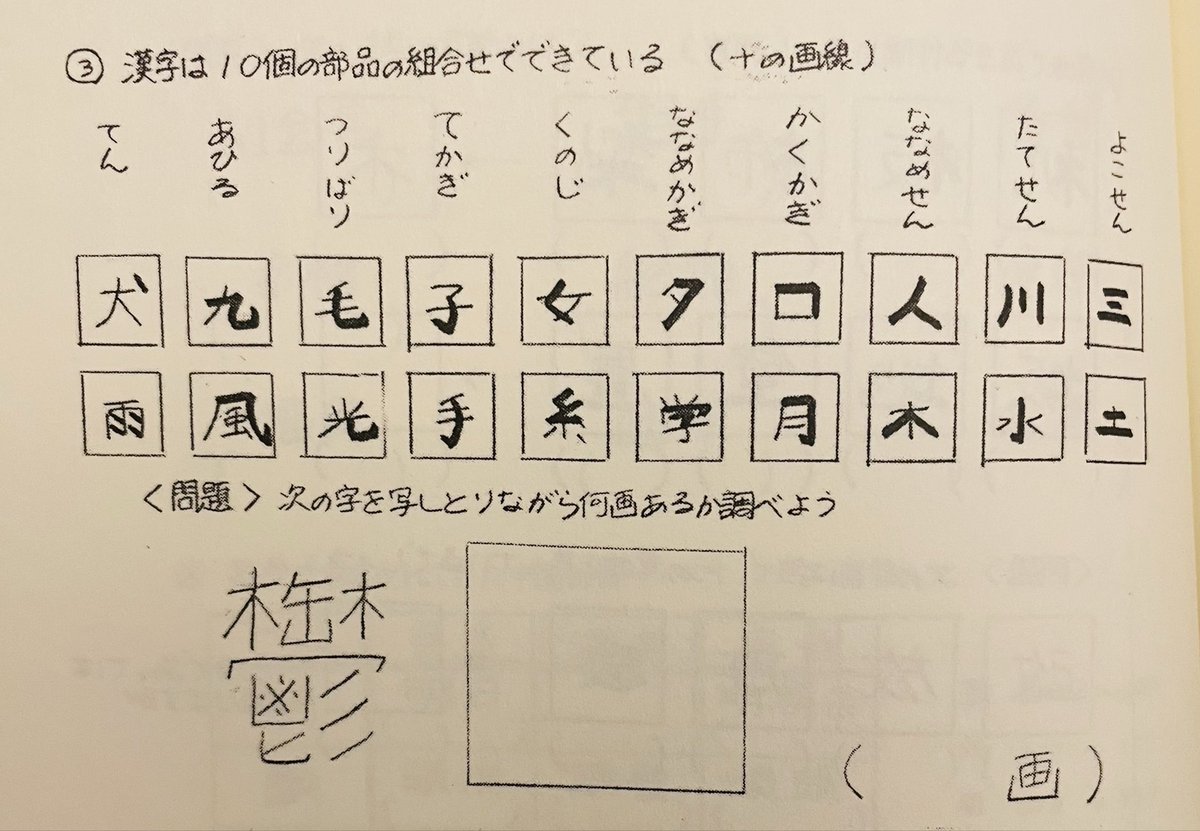 ③ 漢字は10個の部品の組合せでできている （十の画線）
よこせん
たてせん
ななめせん
かくかぎ
ななめかぎ
くのじ
てかぎ
つりばり
あひる
てん
三 川 人 口 夕 女 子 毛 九 犬
土 水 木 月 学 糸 手 光 風 雨
〈問題〉次の字を写しとりながら何画あるか調べよう
鬱
（ 画）